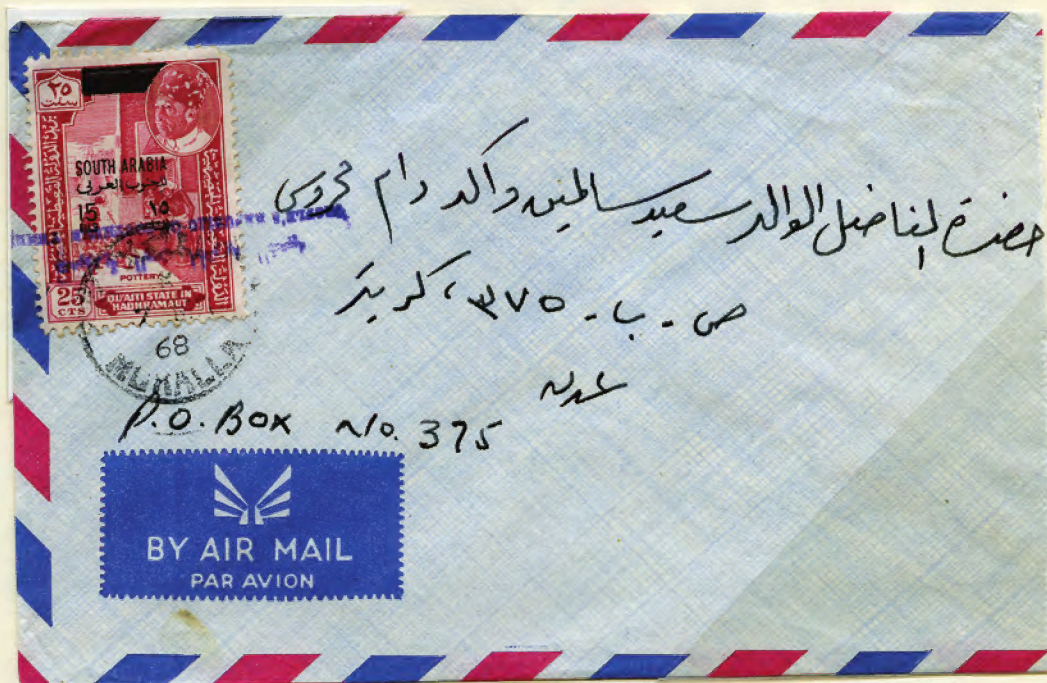 ٢٥
سنت
SOUTH ARABIA
الجنوب العربي
15 ١٥
POTTERY
25
CTS
QU'AITI STATE IN
HADHRAMAUT
68
MUKALLA
حضرة الفاضل الوالد سعيد سالمين واكد دام محروس
ص . ب . ٣٧٥ ، كريتر
عدن
P.O. Box No. 375
BY AIR MAIL
PAR AVION